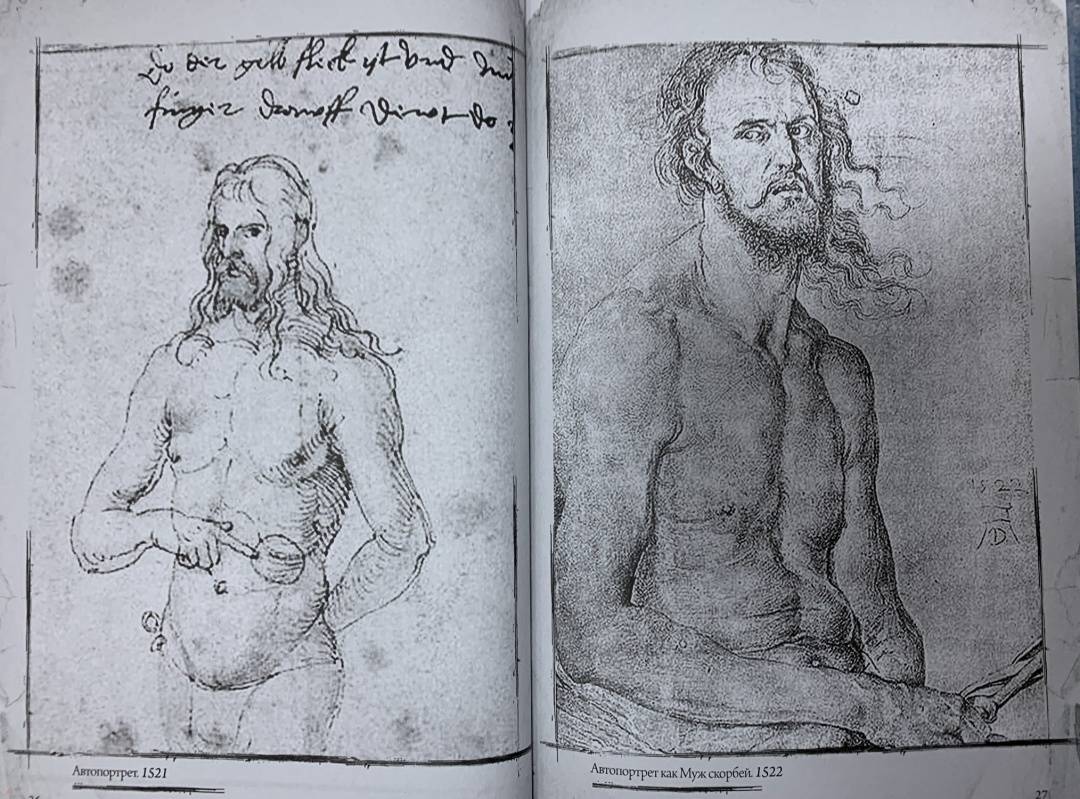 Do der gelb fleck ist und
finger drawff dewt do
1522
AD
Автопортрет. 1521
Автопортрет как Муж скорбей. 1522
27